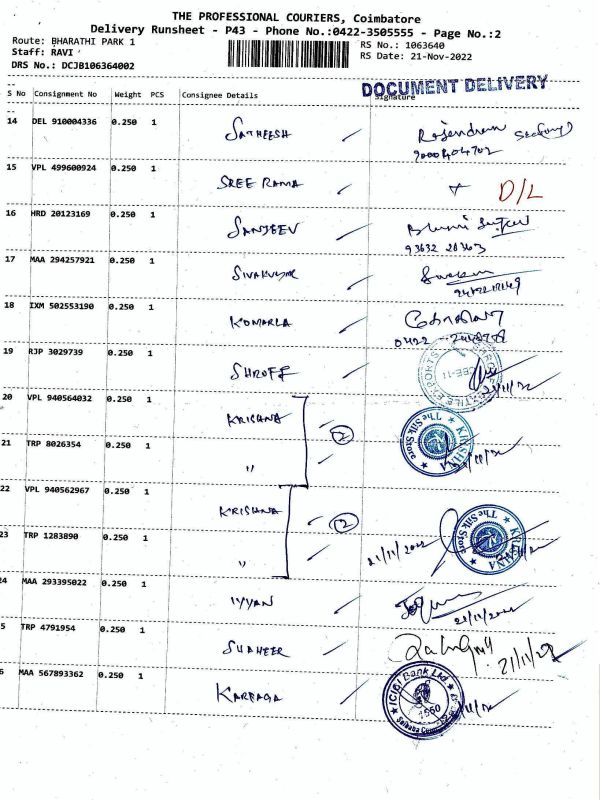 THE PROFESSIONAL COURIERS, Coimbatore
Delivery Runsheet - P43 - Phone No.:0422-3505555 - Page No.:2
Route: BHARATHI PARK 1 RS No.: 1063640
Staff: RAVI RS Date: 21-Nov-2022
DRS No.: DCJB106364002
DOCUMENT DELIVERY
S No Consignment No Weight PCS Consignee Details Signature
14 DEL 910004336 0.250 1 SATHEESH
15 VPL 499600924 0.250 1 SREE RAMA D/L
16 HRD 20123169 0.250 1 SANJEEV
17 MAA 294257921 0.250 1 SIVAKUMAR
18 IXM 502553190 0.250 1 KOMARLA
0422
19 RJP 3029739 0.250 1 SHROFF
20 VPL 940564032 0.250 1 KRISHNA 2
KRISHNA ★ The Silk Store ★
21 TRP 8026354 0.250 1 "
22 VPL 940562967 0.250 1 KRISHNA 2
KRISHNA ★ The Silk Store ★
23 TRP 1283890 0.250 1 " 21/11/2022
24 MAA 293395022 0.250 1 IYYAN
21/11/2022
5 TRP 4791954 0.250 1 SUAHEER 21/11/22
6 MAA 567893362 0.250 1 KARPAGA
ICICI Bank Ltd.